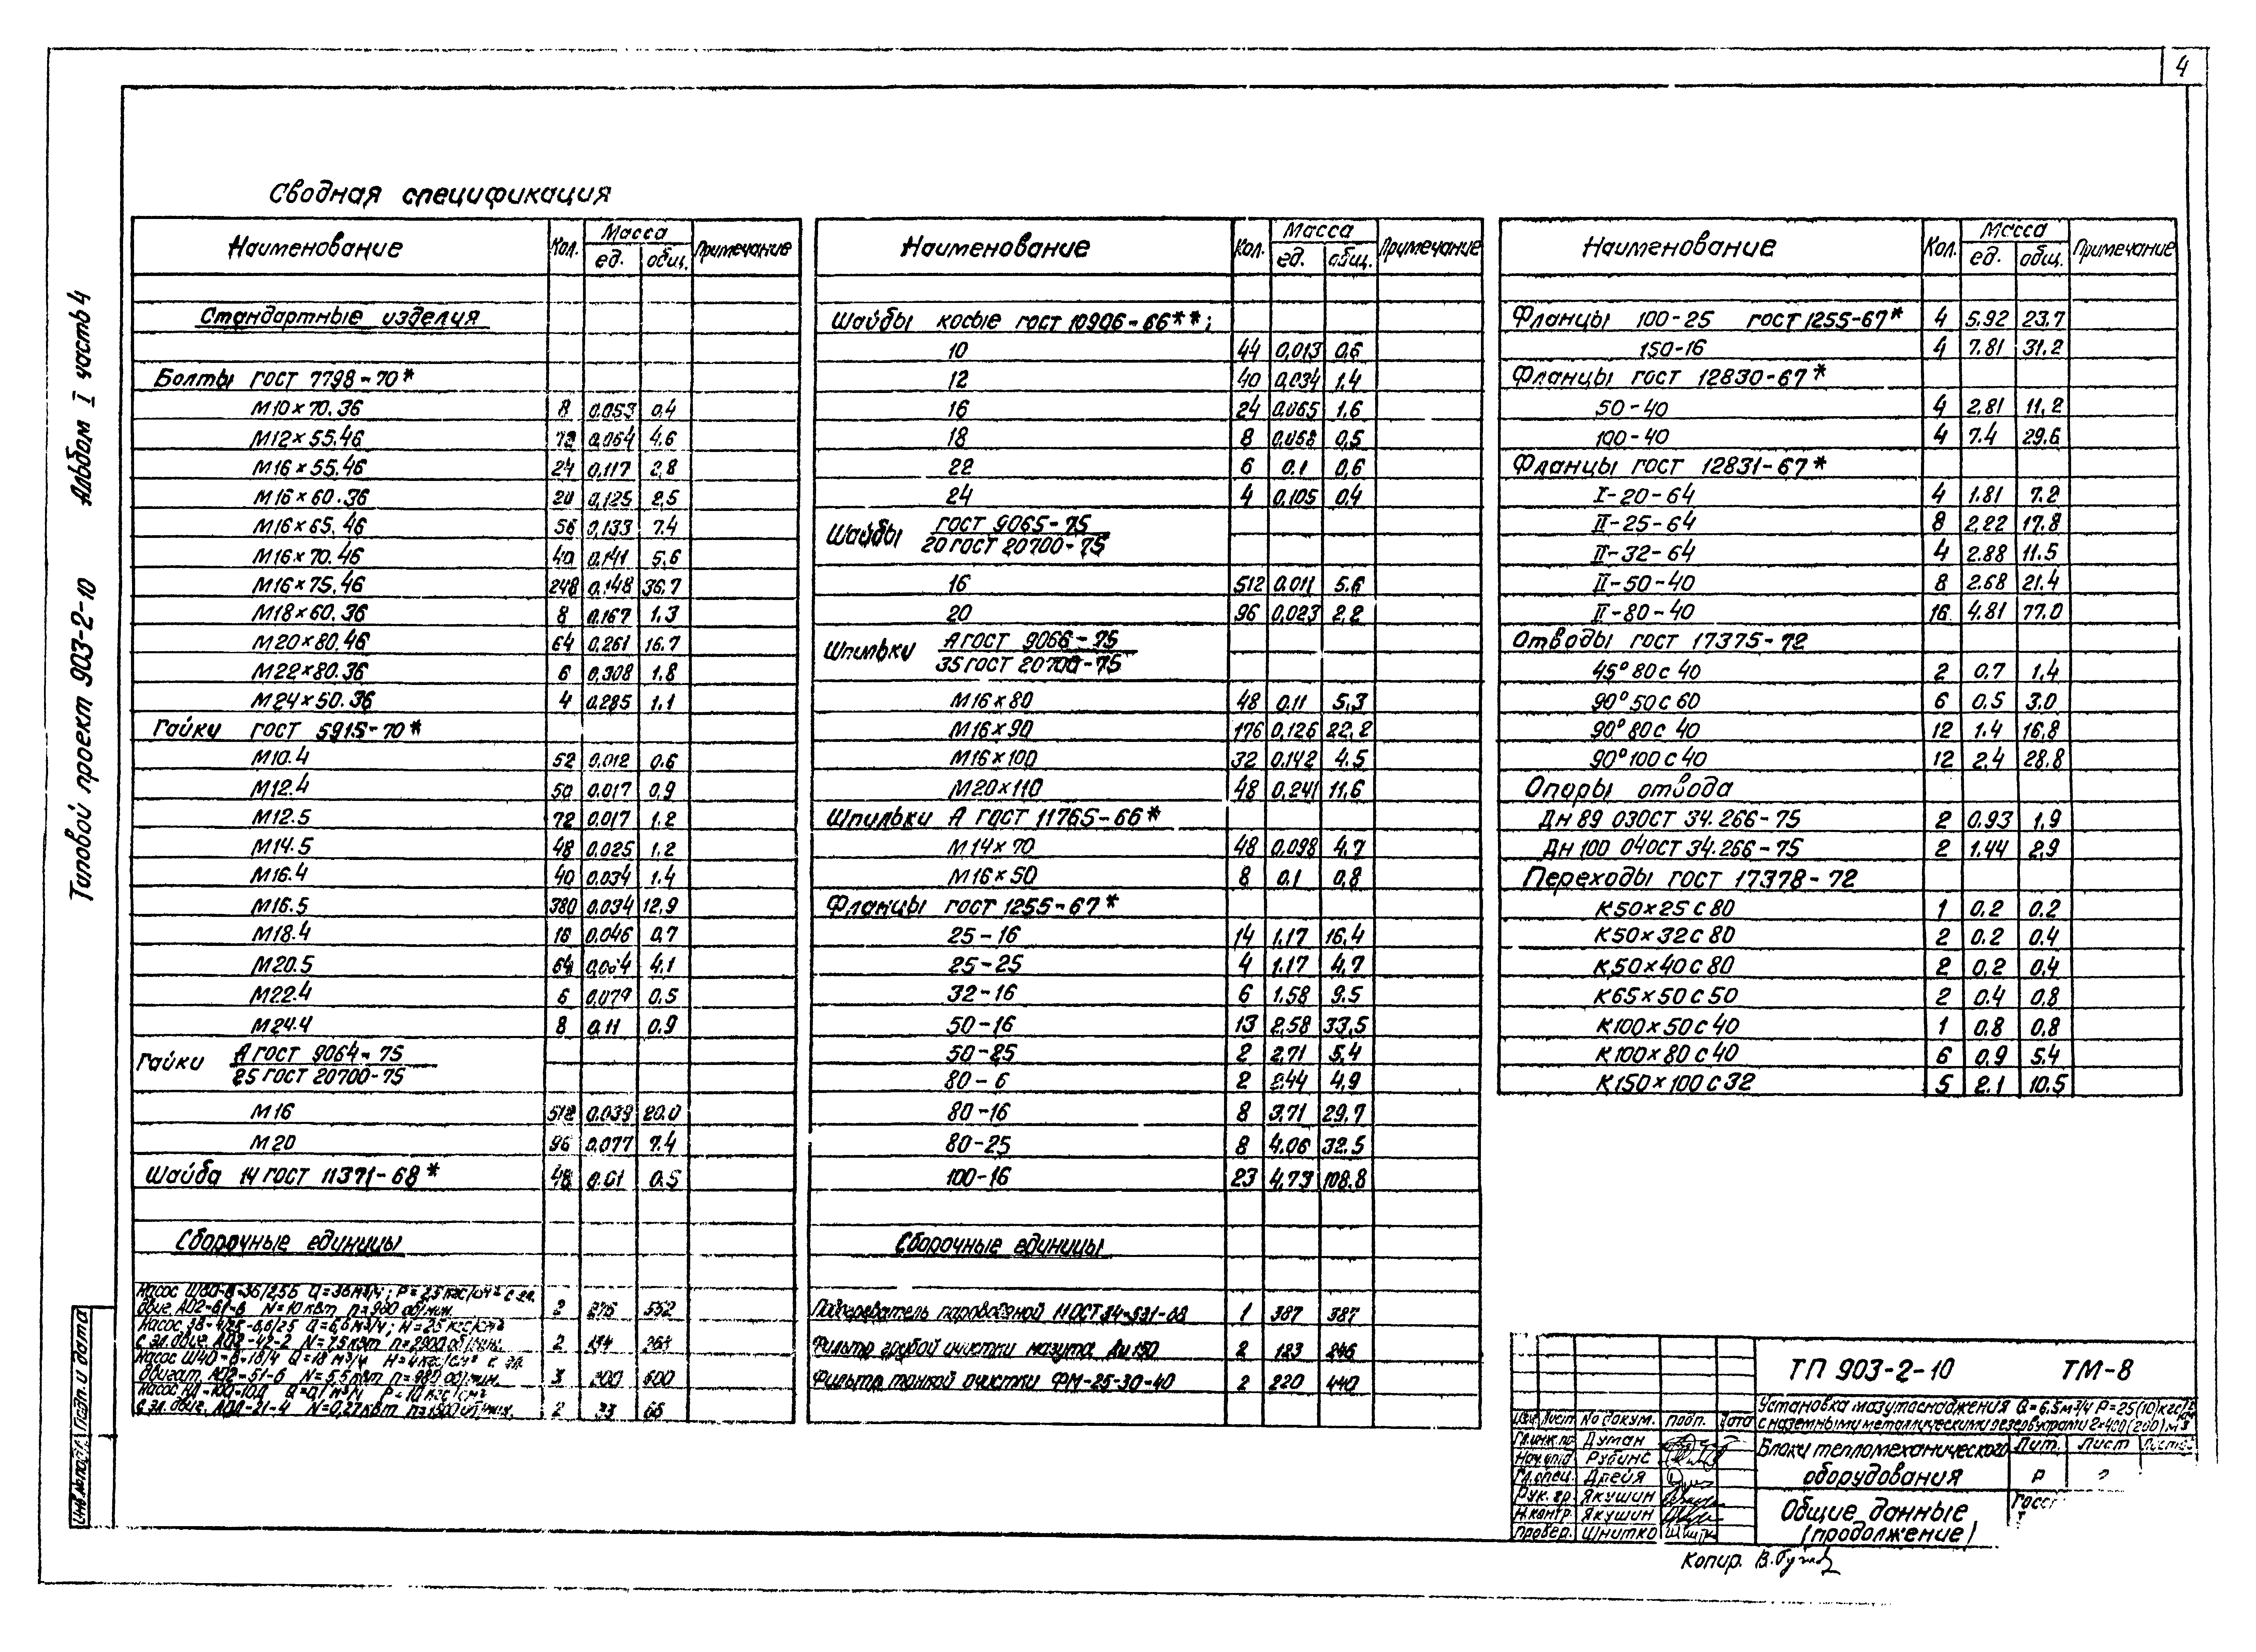 4
Сводная спецификация
Альбом I часть 4
Типовой проект 903-2-10
Наименование Кол. Масса ед. общ. Примечание
Стандартные изделия
Болты ГОСТ 7798-70*
М10×70.36 8 0.053 0.4
М12×55.46 72 0.064 4.6
М16×55.46 24 0.117 2.8
М16×60.36 20 0.125 2.5
М16×65.46 56 0.133 7.4
М16×70.46 40 0.141 5.6
М16×75.46 248 0.148 36.7
М18×60.36 8 0.167 1.3
М20×80.46 64 0.261 16.7
М22×80.36 6 0.308 1.8
М24×50.36 4 0.285 1.1
Гайки ГОСТ 5915-70*
М10.4 52 0.012 0.6
М12.4 50 0.017 0.9
М12.5 72 0.017 1.2
М14.5 48 0.025 1.2
М16.4 40 0.034 1.4
М16.5 380 0.034 12.9
М18.4 16 0.046 0.7
М20.5 64 0.064 4.1
М22.4 6 0.079 0.5
М24.4 8 0.11 0.9
Гайки А ГОСТ 9064-75
25 ГОСТ 20700-75
М16 512 0.039 20.0
М20 96 0.077 7.4
Шайба 14 ГОСТ 11371-68* 48 0.01 0.5
Сборочные единицы
Насос Ш80-6-36/2.5Б Q=36м³/ч; P=2.5 кгс/см² с эл.
двиг. АО2-61-6 N=10 квт n=980 об/мин. 2 276 552
Q=6,6 м³/ч; H=25 кгс/см²
с эл. двиг. АО2-42-2 N=7.5 квт n=2900 об/мин. 2
Насос Ш40-6-18/4 Q=18 м³/ч H=4 кгс/см² с эл.
двигат. АО2-51-6 N=5.5 квт n=980 об/мин. 3 200 600
Насос Q=0,1 м³/ч P=10 кгс/см²
с эл. двиг. АОЛ-21-4 N=0,27 квт об/мин. 2 33 66
Наименование Кол. Масса ед. общ. Примечание
Шайбы косые ГОСТ 10906-66**;
10 44 0,013 0,6
12 40 0,034 1.4
16 24 0,065 1,6
18 8 0,068 0,5
22 6 0.1 0,6
24 4 0,105 0,4
Шайбы ГОСТ 9065-75
20 ГОСТ 20700-75
16 512 0.011 5.6
20 96 0,023 2,2
Шпильки А ГОСТ 9066-75
35 ГОСТ 20700-75
М16×80 48 0.11 5,3
М16×90 176 0,126 22,2
М16×100 32 0.142 4.5
М20×110 48 0,241 11,6
Шпильки А ГОСТ 11765-66*
М14×70 48 0,098 4,7
М16×50 8 0.1 0,8
Фланцы ГОСТ 1255-67*
25-16 14 1.17 16,4
25-25 4 1.17 4,7
32-16 6 1.58 9.5
50-16 13 2.58 33,5
50-25 2 2.71 5,4
80-6 2 2.44 4,9
80-16 8 3.71 29,7
80-25 8 4.06 32.5
100-16 23 4,73 108,8
Сборочные единицы
Подогреватель пароводяной 1 387 387
Фильтр грубой очистки мазута Ду 150 2 123 246
Фильтр тонкой очистки ФМ-25-30-40 2 220 440
Наименование Кол. Масса ед. общ. Примечание
Фланцы 100-25 ГОСТ 1255-67* 4 5.92 23.7
150-16 4 7.81 31.2
Фланцы ГОСТ 12830-67*
50-40 4 2.81 11,2
100-40 4 7.4 29.6
Фланцы ГОСТ 12831-67*
I-20-64 4 1.81 7.2
II-25-64 8 2.22 17.8
II-32-64 4 2.88 11.5
II-50-40 8 2.68 21.4
II-80-40 16 4.81 77.0
Отводы ГОСТ 17375-72
45° 80 с 40 2 0.7 1,4
90° 50 с 60 6 0.5 3.0
90° 80 с 40 12 1.4 16,8
90° 100 с 40 12 2.4 28.8
Опоры отвода
Дн 89 03 ОСТ 34.266-75 2 0.93 1,9
Дн 100 04 ОСТ 34.266-75 2 1.44 2,9
Переходы ГОСТ 17378-72
К50×25 с 80 1 0.2 0.2
К50×32 с 80 2 0.2 0.4
К50×40 с 80 2 0.2 0.4
К65×50 с 50 2 0.4 0.8
К100×50 с 40 1 0.8 0.8
К100×80 с 40 6 0.9 5.4
К150×100 с 32 5 2.1 10.5
Инв.№ подл. Подп. и дата
ТП 903-2-10 ТМ-8
Установка мазутоснабжения Q=6.5м³/ч P=25(10)кгс/см²
с наземными металлическими резервуарами 2×400(200)м³
Изм. Лист № докум. Подп. Дата
Гл.инж.пр Думан
Нач.отд Рубинс
Гл.спец. Дрейя
Рук.гр. Якушин
Н.контр. Якушин
Провер. Шнитко
Блоки тепломеханического
оборудования
Лит. Лист Листов
Р
Общие данные
(продолжение)
Копир.